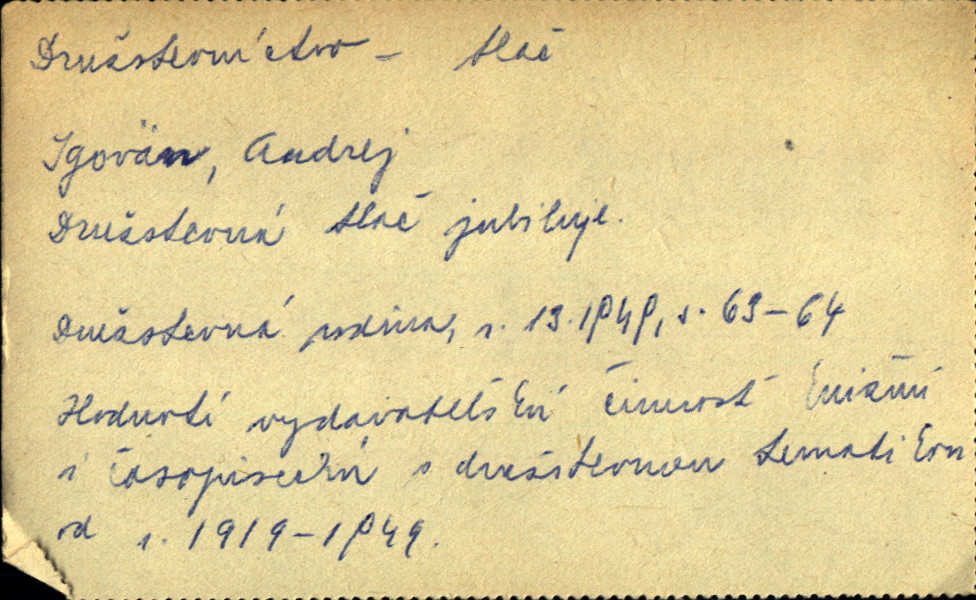 Družstevníctvo - tlač
Igován, Andrej
Družstevná tlač jubiluje.
Družstevná rodina, r. 13.1949, s. 63-64
Hodnotí vydavateľskú činnosť knižnú
i časopiseckú s družstevnou tematikou
od r. 1919-1949.